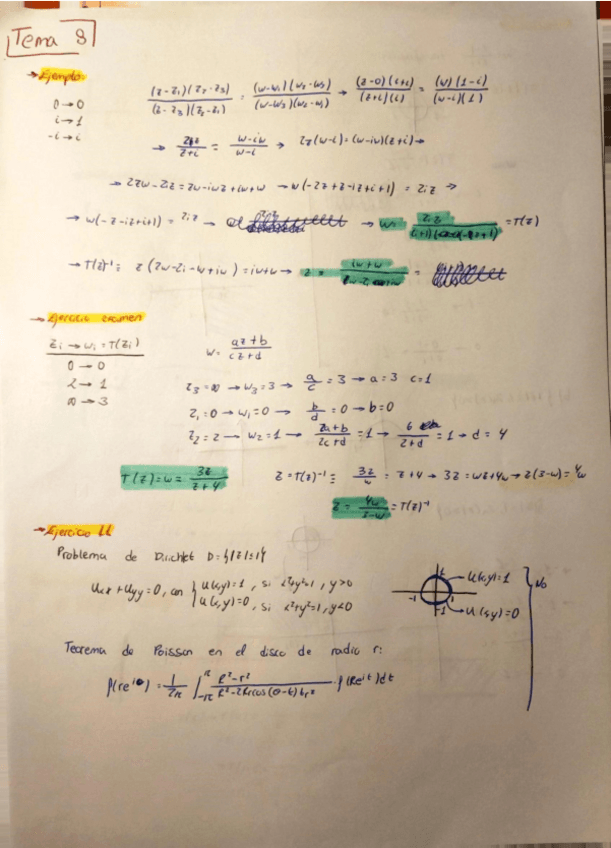 Tema 8
→ Ejemplo
(z-z₁)(z₂-z₃) / (z-z₃)(z₂-z₁) = (w-w₁)(w₂-w₃) / (w-w₃)(w₂-w₁) → (z-0)(i+i) / (z+i)(i) = (w)(1-i) / (w-i)(1)
0 → 0
i → 1
-i → i
→ 2z / z+i = w-iw / w-i → 2z(w-i) = (w-iw)(z+i) →
→ w(-z-iz+i+1) = 2iz →
→ w = 2iz = T(z)
→ T(z)⁻¹ = z(2w-2i-w+iw) = iw+w → z = iw+w
→ Ejercicio examen
zᵢ → wᵢ = T(zᵢ)
w = az+b / cz+d
0 → 0
2 → 1
∞ → 3
z₃ = ∞ → w₃ = 3 → a/c = 3 → a = 3 c = 1
z₁ = 0 → w₁ = 0 → b/d = 0 → b = 0
z₂ = 2 → w₂ = 1 → 2a+b / 2c+d = 1 → 6 / 2+d = 1 → d = 4
T(z) = w = 3z / z+4
z = T(z)⁻¹ = 3z / w = z+4 → 3z = wz+4w → z(3-w) = 4w
z = 4w / 3-w = T(z)⁻¹
→ Ejercicio 11
Problema de Dirichlet D = {|z|=1}
Uxx + Uyy = 0, con { u(x,y)=1, si x²+y²=1, y>0
u(x,y)=0, si x²+y²=1, y<0
u(x,y)=1
-1 1
-1 u(x,y)=0
No
Teorema de Poisson en el disco de radio r:
f(re^iθ) = 1/2π ∫_-π^π R²-r² / R²-2Rrcos(θ-t)+r² · f(Re^it)dt